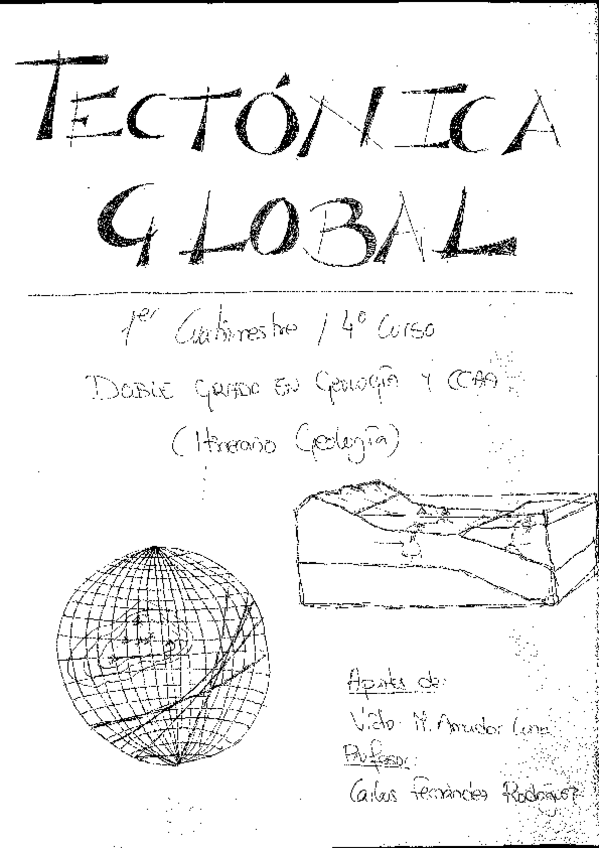 TECTÓNICA
GLOBAL
1er Cuatrimestre / 4º Curso
DOBLE GRADO EN Geología Y CCAA
(Itinerario Geología)
Apuntes de:
M. Amador Luna
Profesor:
Carlos Fernández Rodríguez